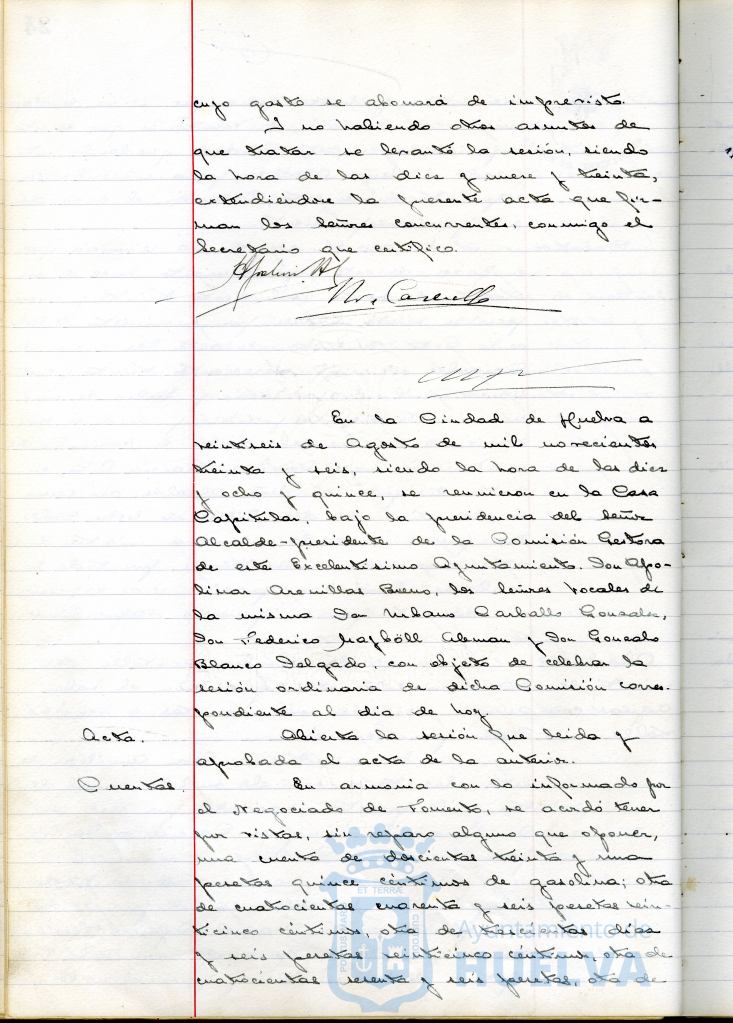 cuyo gasto se abonará de imprevisto.
Y no habiendo otros asuntos de
que tratar se levantó la sesión, siendo
la hora de las diez y nueve y treinta,
extendiéndose la presente acta que fir-
man los señores concurrentes, conmigo el
Secretario que certifico.
En la Ciudad de Huelva a
veintiseis de Agosto de mil novecientos
treinta y seis, siendo la hora de las diez
y ocho y quince, se reunieron en la Casa
Capitular, bajo la presidencia del Señor
Alcalde-presidente de la Comisión Gestora
de este Excelentísimo Ayuntamiento. Don Apo-
linar Arenillas Bueno, los señores vocales de
la misma Don Urbano Carballo Gonzalez,
Don Federico Mayböll Aleman y Don Gonzalo
Blanco Delgado, con objeto de celebrar la
sesión ordinaria de dicha Comisión corres-
pondiente al día de hoy.
Acta. Abierta la sesión fue leida y
aprobada el acta de la anterior.
Cuentas. En armonia con lo informado por
el Negociado de Fomento, se acordó tener
por vistas, sin reparo alguno que oponer,
una cuenta de doscientas treinta y una
pesetas quince céntimos de gasolina; otra
de cuatrocientas cuarenta y seis pesetas vein-
ticinco céntimos, otra de trescientas diez
y seis pesetas veinticinco céntimos, otra de
cuatrocientas sesenta y seis pesetas, otra de
Ayuntamiento de
HUELVA